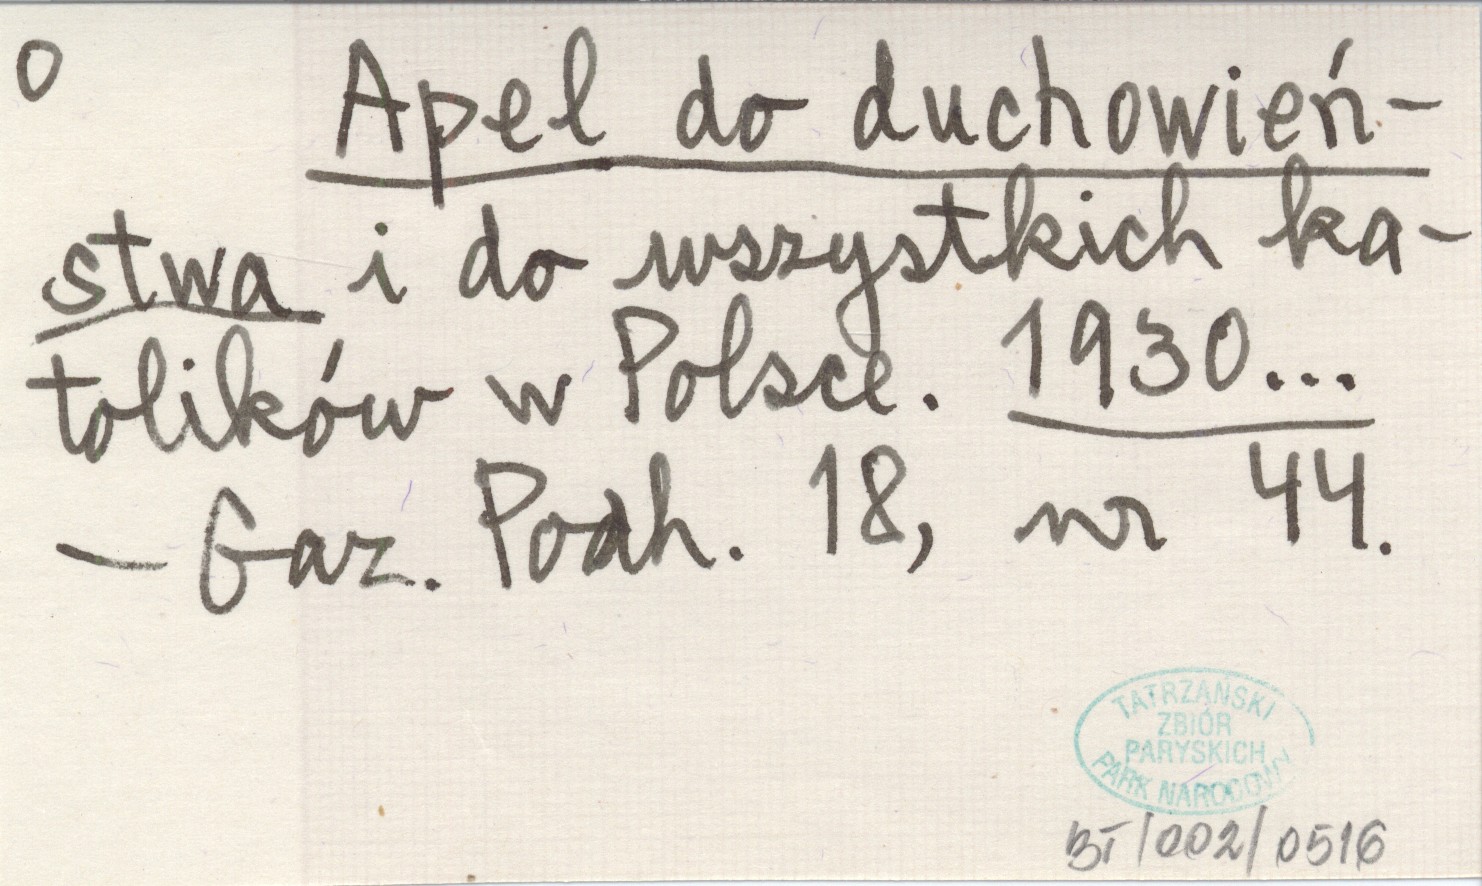 0 Apel do duchowień-
stwa i do wszystkich ka-
tolików w Polsce. 1930...
— Gaz. Podh. 18, nr 44.
TATRZAŃSKI
ZBIÓR
PARYSKICH
PARK NARODOWY
BT/002/0516